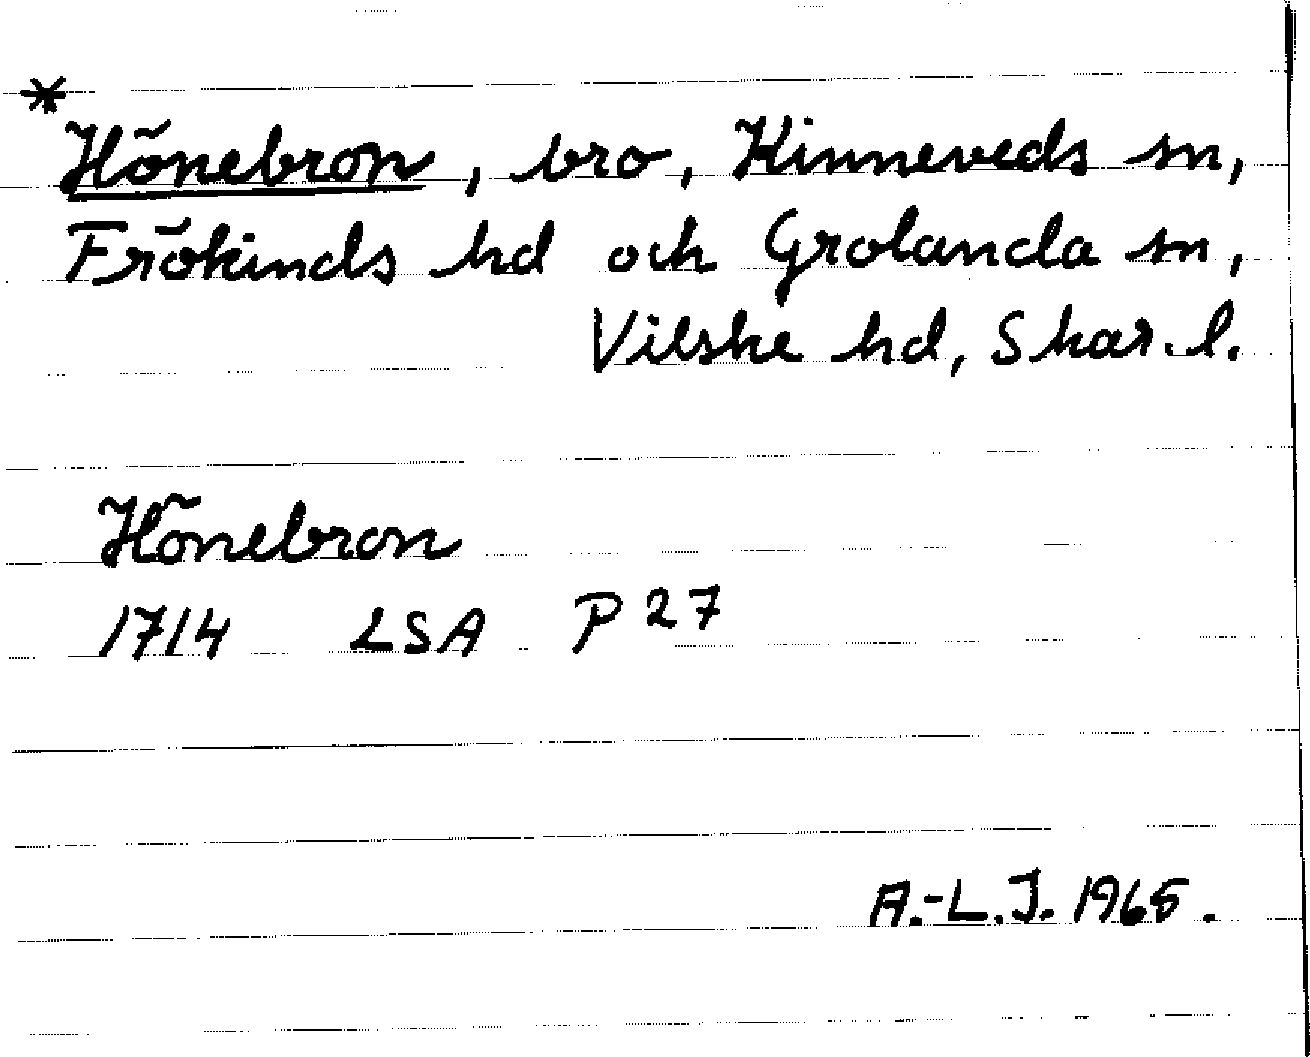 *
Hönebron, bro, Kinneveds sn,
Frökinds hd och Grolanda sn,
Vilske hd, Skar. l.
Hönebron
1714 LSA P 27
A.-L.J. 1965.